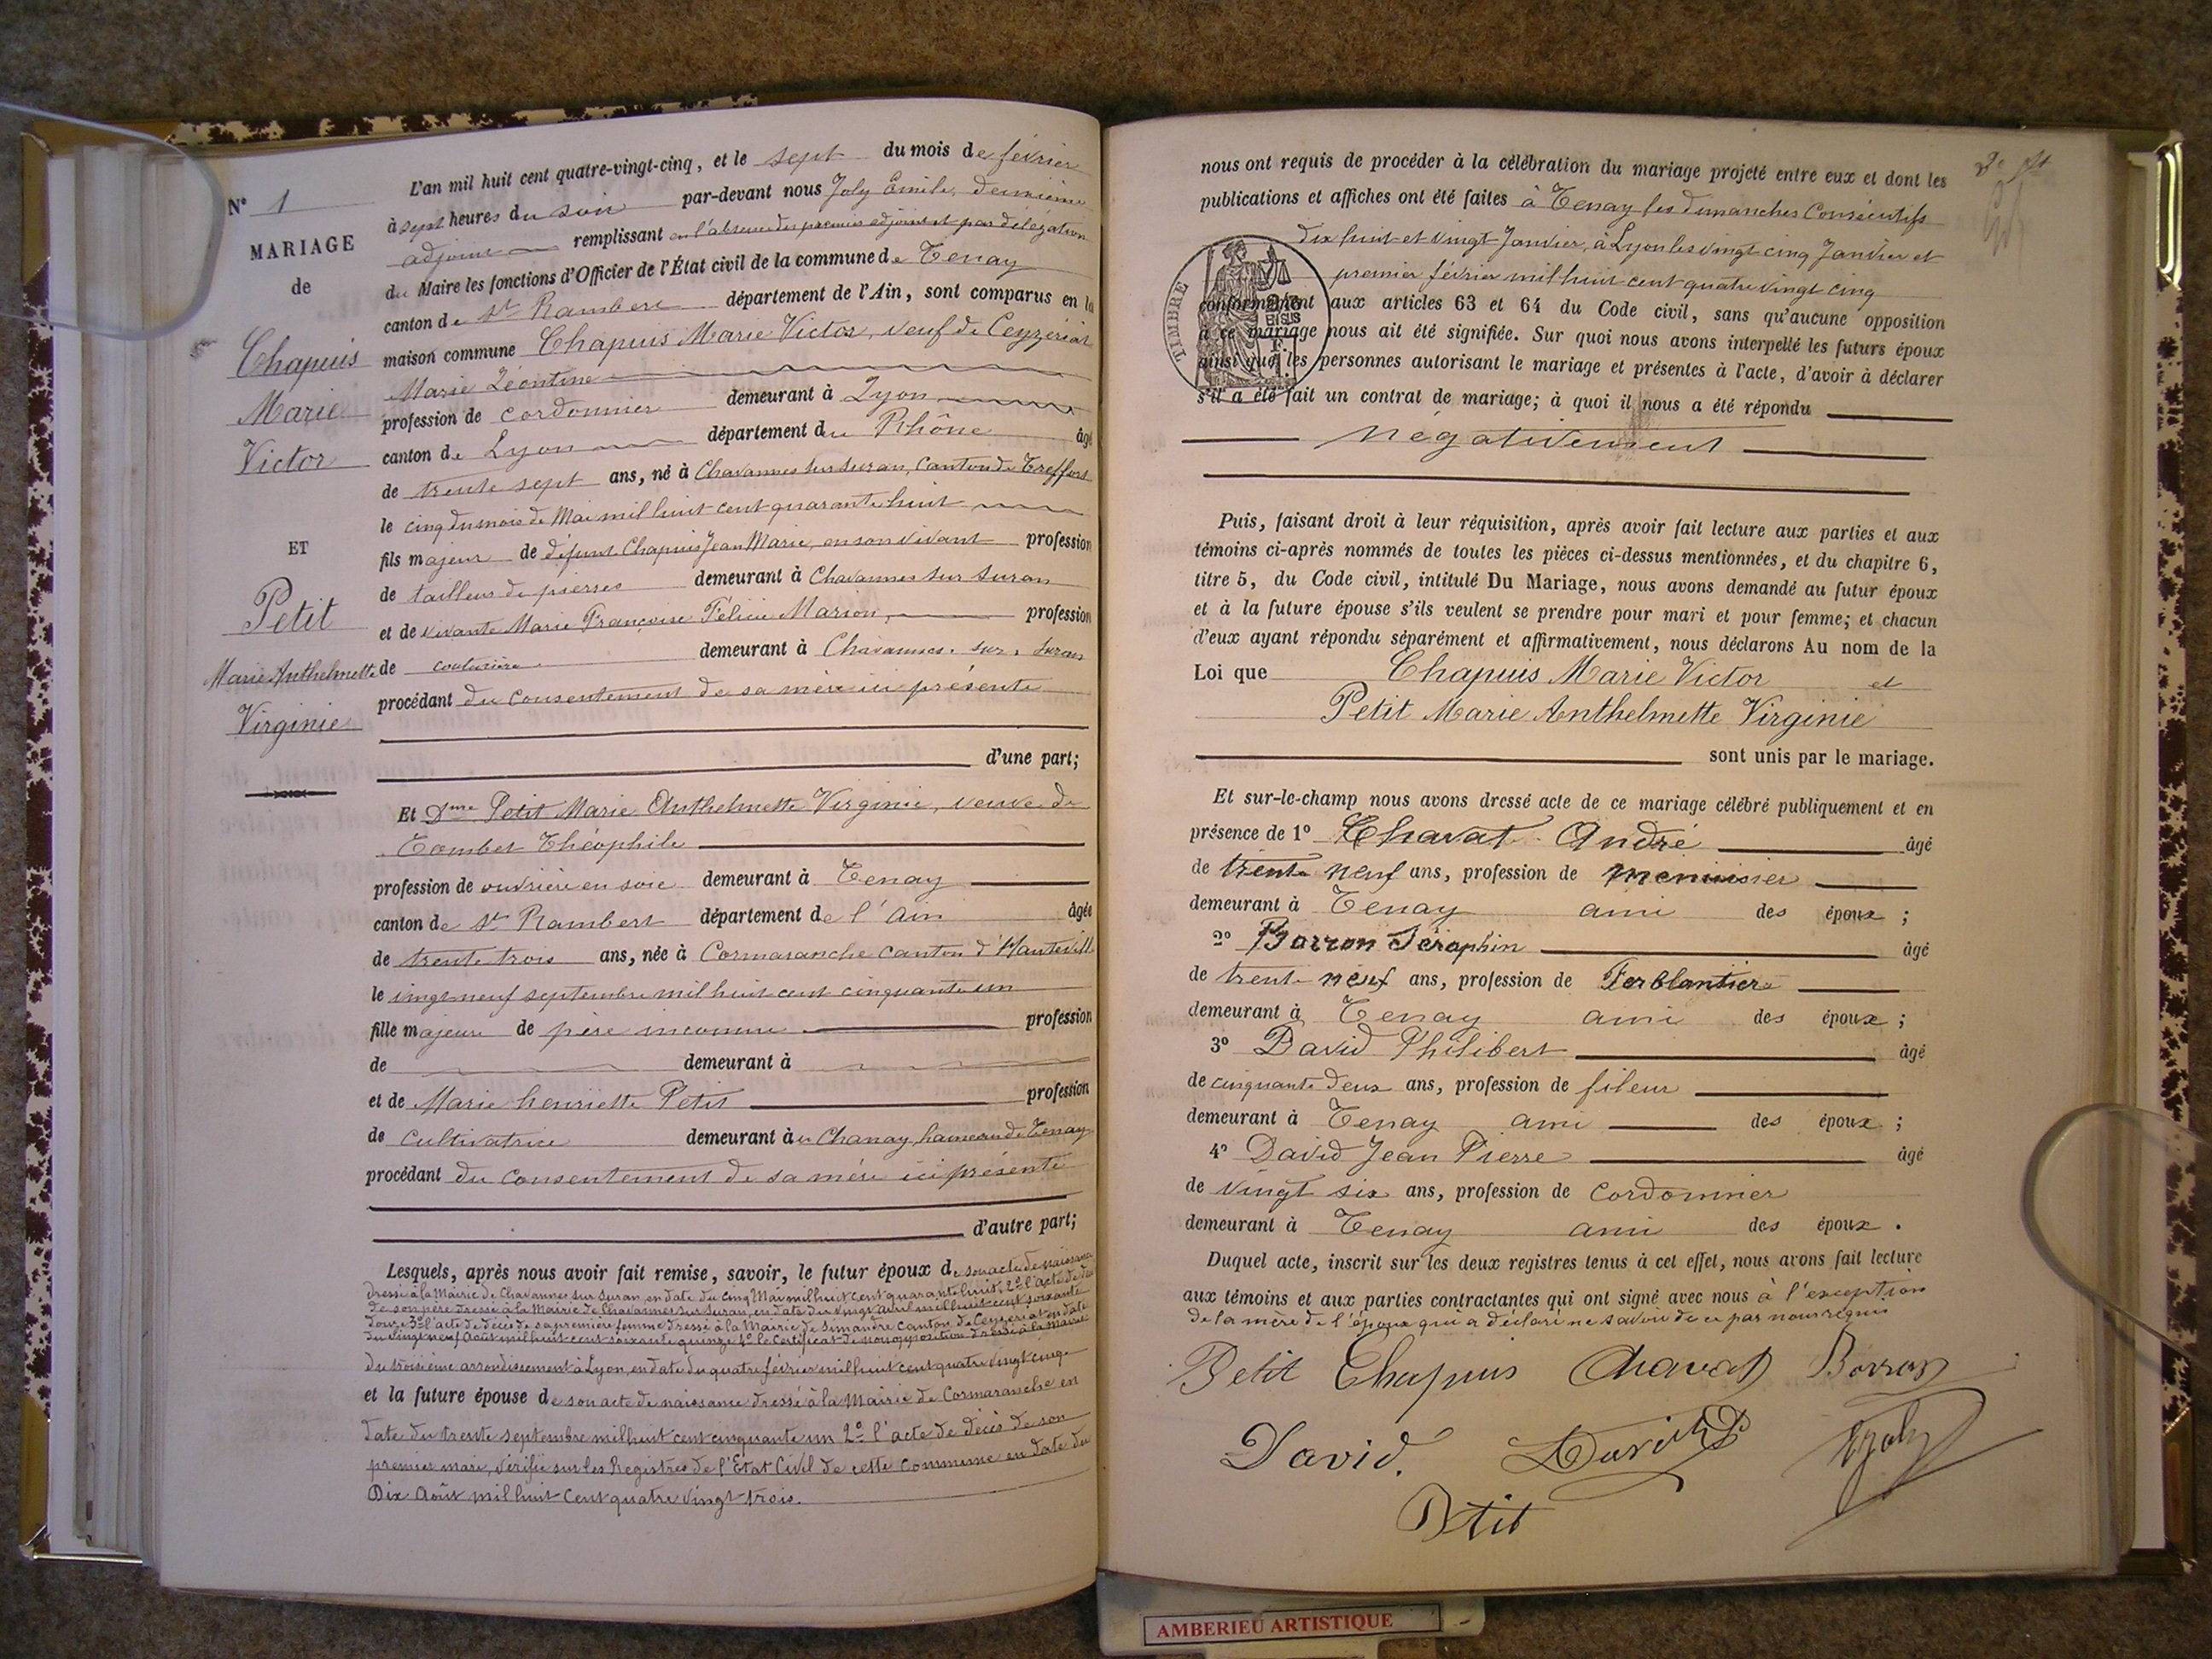 N° 1
MARIAGE
de
Chapuis
Marie
Victor
ET
Petit
Marie Anthelmette
Virginie
L'an mil huit cent quatre-vingt-cinq, et le sept du mois de février
à sept heures du soir par-devant nous Joly Emile, deuxième
adjoint remplissant en l'absence du premier adjoint et par délégation
du Maire les fonctions d'Officier de l'État civil de la commune de Tenay
canton de St Rambert département de l'Ain, sont comparus en la
maison commune Chapuis Marie Victor, veuf de Ceyzériat
Marie Léontine
profession de cordonnier demeurant à Lyon
canton de Lyon département du Rhône âgé
de trente sept ans, né à Chavannes sur Suran, canton de Treffort
le cinq du mois de Mai mil huit cent quarante huit
fils majeur de défunt Chapuis Jean Marie, en son vivant profession
de tailleur de pierres demeurant à Chavannes sur Suran
et de vivante Marie Françoise Félicie Marion, profession
de couturière demeurant à Chavannes. sur. Suran
procédant du consentement de sa mère ici présente
d'une part;
Et Dme Petit Marie Anthelmette Virginie, veuve de
Tombet Théophile
profession de ouvrière en soie demeurant à Tenay
canton de St Rambert département de l'Ain âgée
de trente trois ans, née à Cormaranche canton d'Hauteville
le vingt neuf septembre mil huit cent cinquante un
fille majeure de père inconnu profession
de demeurant à
et de Marie henriette Petit profession
de cultivatrice demeurant à Chanay, hameau de Tenay
procédant du consentement de sa mère ici présente
d'autre part;
Lesquels, après nous avoir fait remise, savoir, le futur époux de son acte de naissance
dressé à la Mairie de Chavannes sur Suran, en date du cinq Mai mil huit cent quarante huit, 2° l'acte de décès
de son père dressé à la Mairie de Chavannes sur Suran, en date du vingt avril mil huit cent soixante
douze 3° l'acte de décès de sa première femme dressé à la Mairie de Simandre canton de Ceyzériat en date
du vingt neuf Août mil huit cent soixante quinze 4° le Certificat de non opposition dressé à la Mairie
du troisième arrondissement à Lyon, en date du quatre février mil huit cent quatre vingt cinq
et la future épouse de son acte de naissance dressé à la Mairie de Cormaranche en
date du trente septembre mil huit cent cinquante un 2° l'acte de décès de son
premier mari, vérifié sur les Registres de l'Etat Civil de cette Commune en date du
Dix Août mil huit cent quatre vingt trois.
nous ont requis de procéder à la célébration du mariage projeté entre eux et dont les
publications et affiches ont été faites à Tenay les dimanches Consécutifs
dix huit et vingt Janvier, à Lyon les vingt cinq Janvier et
premier février mil huit cent quatre vingt cinq
TIMBRE
conformément aux articles 63 et 64 du Code civil, sans qu'aucune opposition
à ce mariage nous ait été signifiée. Sur quoi nous avons interpellé les futurs époux
ainsi que les personnes autorisant le mariage et présentes à l'acte, d'avoir à déclarer
s'il a été fait un contrat de mariage; à quoi il nous a été répondu
négativement
Puis, faisant droit à leur réquisition, après avoir fait lecture aux parties et aux
témoins ci-après nommés de toutes les pièces ci-dessus mentionnées, et du chapitre 6,
titre 5, du Code civil, intitulé Du Mariage, nous avons demandé au futur époux
et à la future épouse s'ils veulent se prendre pour mari et pour femme; et chacun
d'eux ayant répondu séparément et affirmativement, nous déclarons Au nom de la
Loi que Chapuis Marie Victor et
Petit Marie Anthelmette Virginie
sont unis par le mariage.
Et sur-le-champ nous avons dressé acte de ce mariage célébré publiquement et en
présence de 1° Chavat André âgé
de trente neuf ans, profession de menuisier
demeurant à Tenay ami des époux ;
2° Borron Séraphin âgé
de trente neuf ans, profession de Ferblantier
demeurant à Tenay ami des époux ;
3° David Philibert âgé
de cinquante deux ans, profession de fileur
demeurant à Tenay ami des époux ;
4° David Jean Pierre âgé
de vingt six ans, profession de cordonnier
demeurant à Tenay ami des époux .
Duquel acte, inscrit sur les deux registres tenus à cet effet, nous avons fait lecture
aux témoins et aux parties contractantes qui ont signé avec nous à l'exception
de la mère de l'époux qui a déclaré ne savoir de ce par nous requis
Petit Chapuis Chavat Borron
David. David EJoly
Petit
AMBERIEU ARTISTIQUE